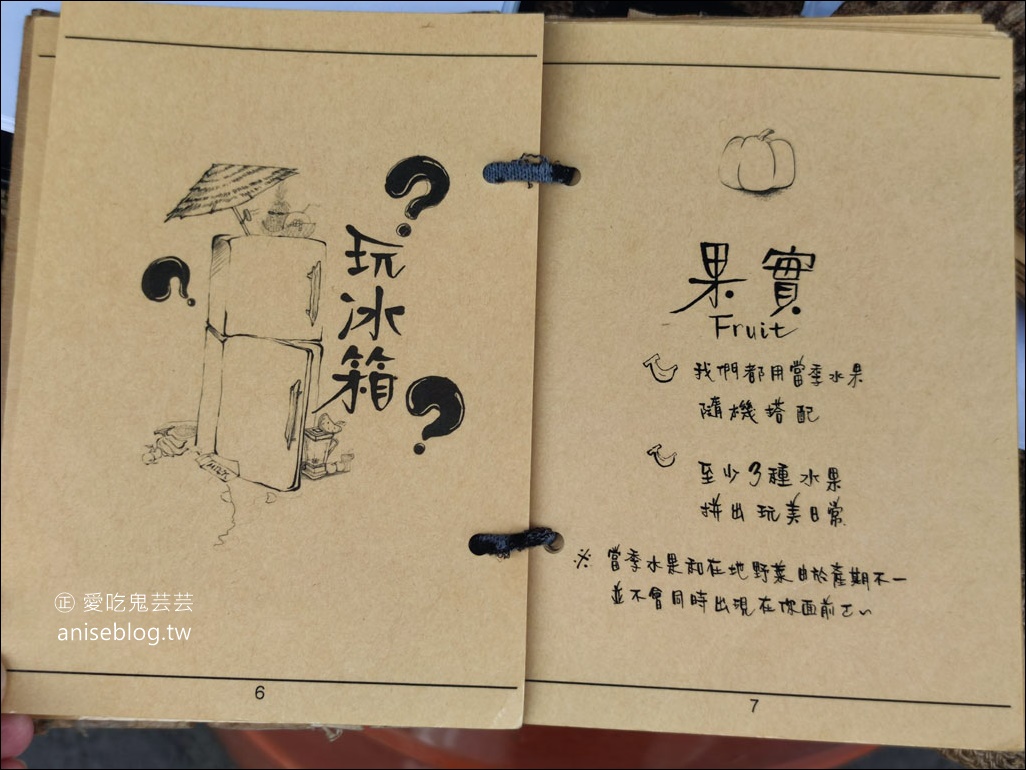 玩冰箱
MILK
6
果實
Fruit
我們都用當季水果
隨機搭配
至少3種水果
拼出玩美日常
※ 當季水果和在地野菜由於產期不一
並不會同時出現在你面前ㄛ~
7
愛吃鬼芸芸
aniseblog.tw